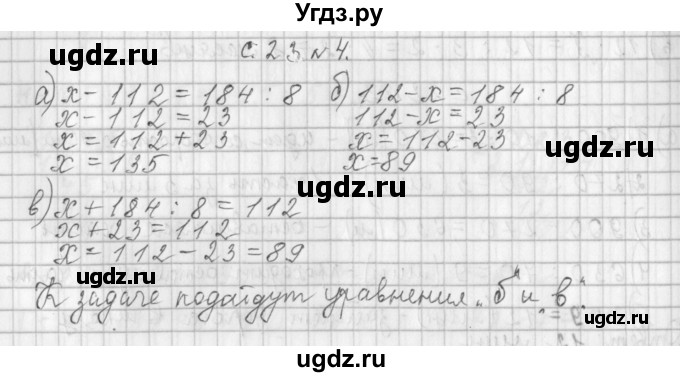 Угдз.ру
с. 23 № 4.
а) х - 112 = 184 : 8 б) 112 - х = 184 : 8
х - 112 = 23 112 - х = 23
х = 112 + 23 х = 112 - 23
х = 135 х = 89
в) х + 184 : 8 = 112
х + 23 = 112
х = 112 - 23 = 89
К задаче подойдут уравнения „б" и „в"
ugdz.ru
ugdz.ru
ugdz.ru
ugdz.ru
ugdz.ru
ugdz.ru
ugdz.ru
ugdz.ru
ugdz.ru